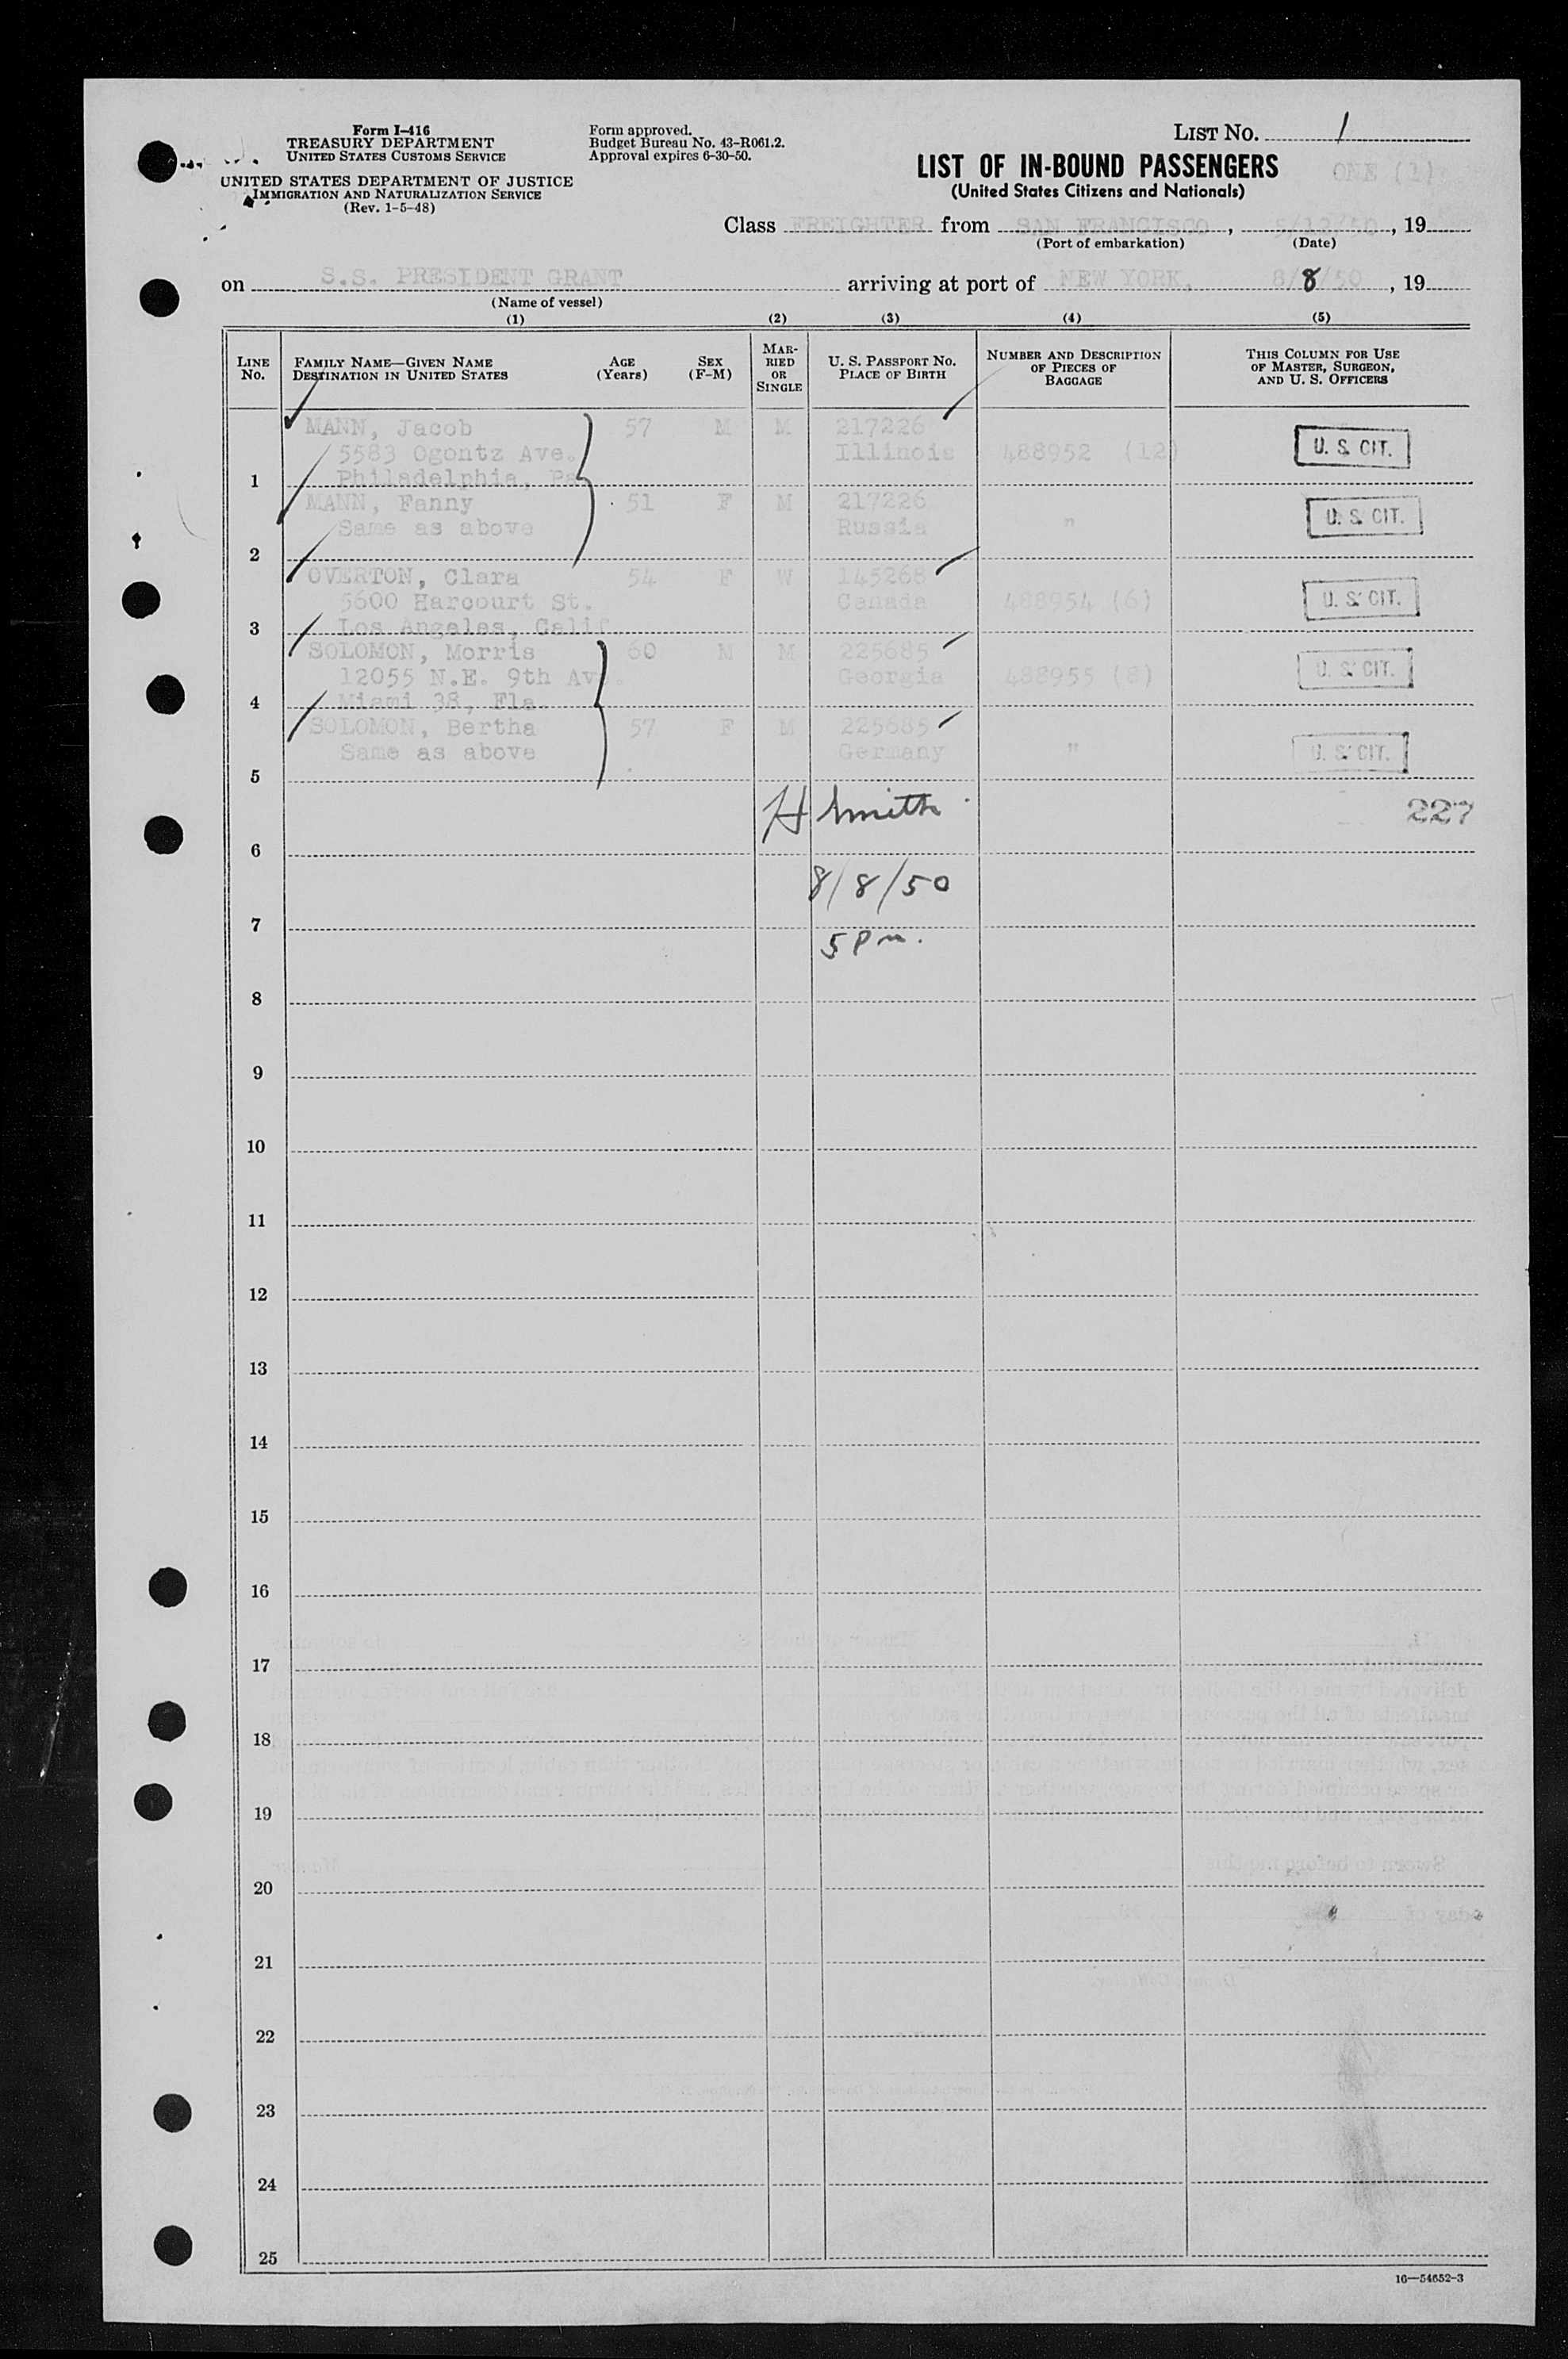 Form I-416
TREASURY DEPARTMENT
UNITED STATES CUSTOMS SERVICE
UNITED STATES DEPARTMENT OF JUSTICE
IMMIGRATION AND NATURALIZATION SERVICE
(Rev. 1-5-48)
Form approved.
Budget Bureau No. 43-R061.2.
Approval expires 6-30-50.
LIST NO. 1
LIST OF IN-BOUND PASSENGERS ONE (1)
(United States Citizens and Nationals)
Class FREIGHTER from SAN FRANCISCO, 5/12/50, 19
(Port of embarkation) (Date)
on S.S. PRESIDENT GRANT arriving at port of NEW YORK, 8/8/50, 19
(Name of vessel)
(1) (2) (3) (4) (5)
LINE NO.
FAMILY NAME—GIVEN NAME
DESTINATION IN UNITED STATES
AGE
(Years)
SEX
(F-M)
MAR-
RIED
OR
SINGLE
U. S. PASSPORT NO.
PLACE OF BIRTH
NUMBER AND DESCRIPTION
OF PIECES OF
BAGGAGE
THIS COLUMN FOR USE
OF MASTER, SURGEON,
AND U. S. OFFICERS
MANN, Jacob 57 M M 217226
5583 Ogontz Ave. Illinois 488952 (12) U. S. CIT.
1 Philadelphia, Pa
MANN, Fanny 51 F M 217226
Same as above Russia " U. S. CIT.
2
OVERTON, Clara 54 F W 145268
5600 Harcourt St. Canada 488954 (6) U. S. CIT.
3 Los Angeles, Calif
SOLOMON, Morris 60 M M 225685
12055 N.E. 9th Av. Georgia 488955 (8) U. S. CIT.
4 Miami 38, Fla.
SOLOMON, Bertha 57 F M 225685
Same as above Germany " U. S. CIT.
5
H Smith 227
6
8/8/50
7
5 Pm.
8
9
10
11
12
13
14
15
16
17
18
19
20
21
22
23
24
25
16—54652-3